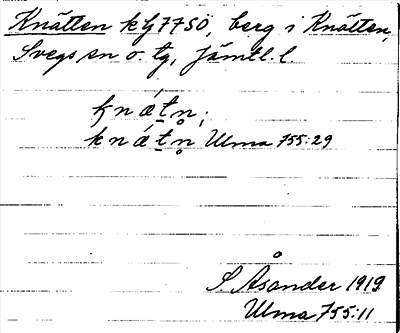 Knätten kG7750, berg i Knätten,
Svegs sn o. tg, Jämtl. l.
kn&#x301;ætn;
knǽtn Ulma 755:29
S. Åsander 1919
Ulma 755:11